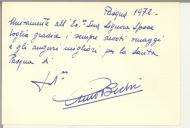 Pasqua 1972 -
Unitamente all'Ec.ma Sua Signora Sposa
voglia gradire i sempre devoti omaggi
e gli auguri migliori per la Santa
Pasqua di